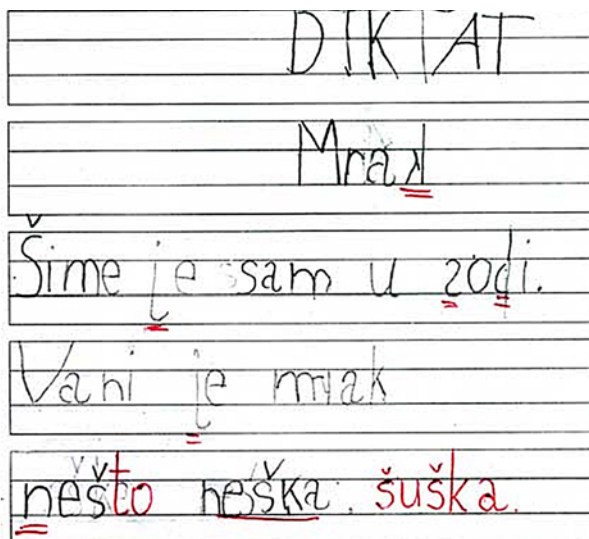 DIKTAT
Mrak
Šime je sam u zodi.
Vani je mrak
nešto heška. šuška.